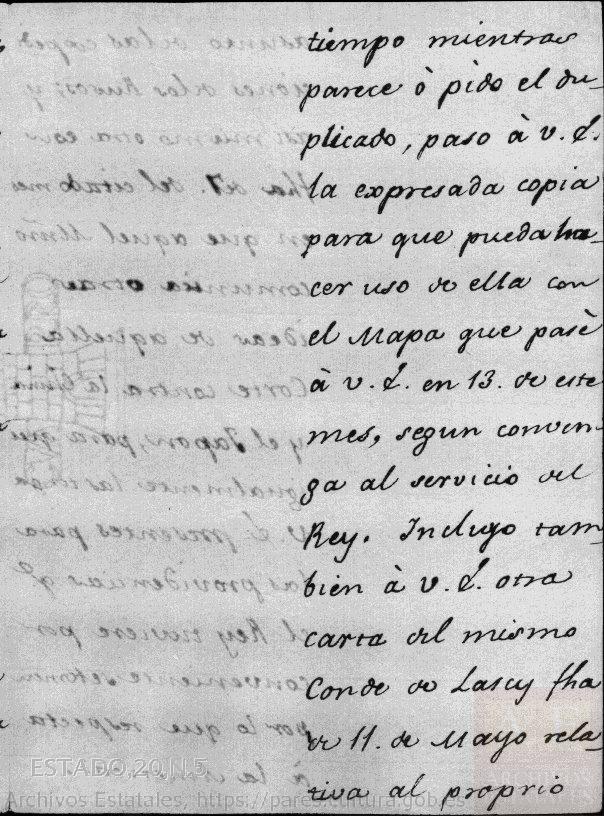 tiempo mientras
parece ò pido el du-
plicado, paso à v. E.
la expresada copia
para que pueda ha-
cer uso de ella con
el Mapa que pasè
à v. E. en 13. de este
mes, segun conven-
ga al servicio del
Rey. Incluyo tam-
bien à v. E. otra
carta del mismo
Conde de Lascy fha
de 11. de Mayo rela-
tiva al proprio
ESTADO,20,N.5
Archivos Estatales, https://pares.cultura.gob.es